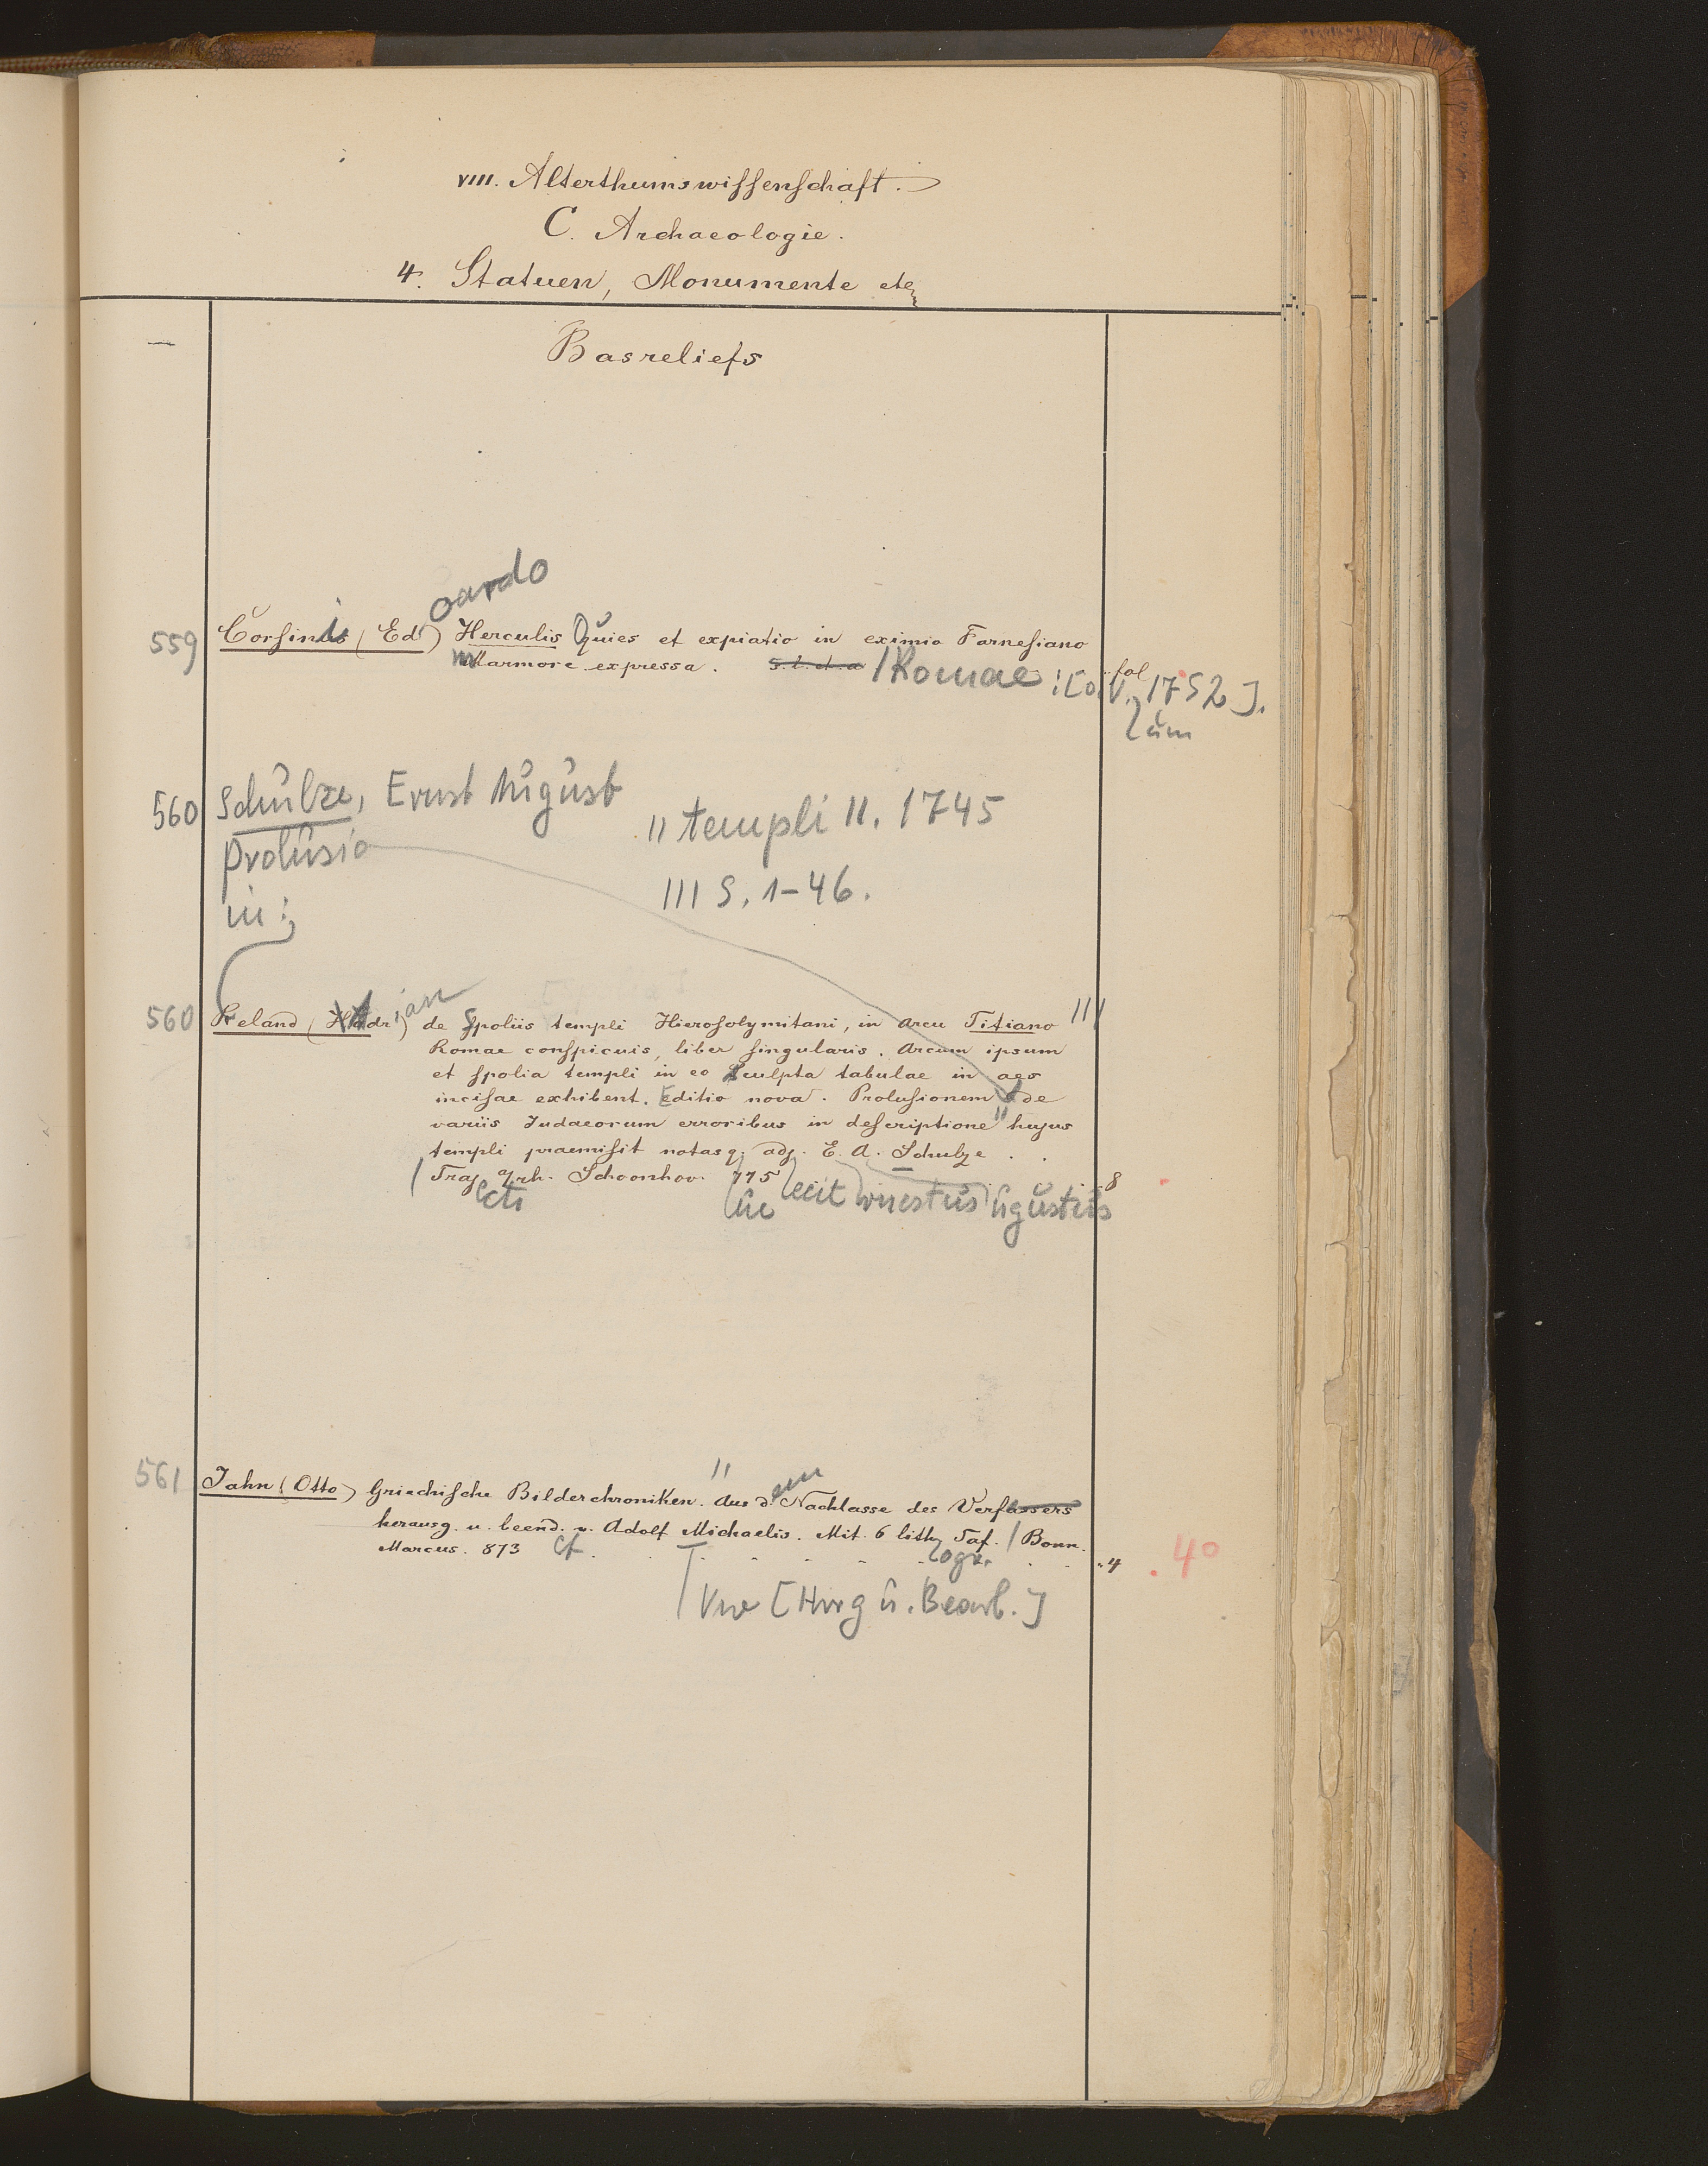 VIII. Alterthumswissenschaft.
C. Archaeologie.
4. Statuen, Monumente etc.
—
Basreliefs
oardo
559 Corsini (Ed) Herculis Quies et expiatio in eximio Farnesiano
marmore expressa. s. l. et a /Romae : [o. V. 1752]. fol
um
560 Schulze, Ernst August
Prolusio
" templi II. 1745
in:
III S. 1-46.
560 Reland (Adrian) de Spoliis templi Hierosolymitani, in arcu Titiano III
Romae conspicuis, liber singularis. Arcum ipsum
et spolia templi in eo sculpta tabulae in aes
incisae exhibent. Editio nova. Prolusionem de
variis Judaeorum erroribus in descriptione " hujus
templi praemisit notasq. adj. E. A. Schulze . .
/ Traj a/rh. Schoonhov. 775 . . 8
ecit rnestus ugustus
561 Jahn (Otto) Griechische Bilderchroniken. " Aus d. em Nachlasse des Verfassers
herausg. u. beend. v. Adolf Michaelis. Mit 6 lith. Taf. / Bonn.
Marcus. 873 cf . . . . . . ogr. . . . 4 . 4°
Vw [Hrsg u. Bearb.]